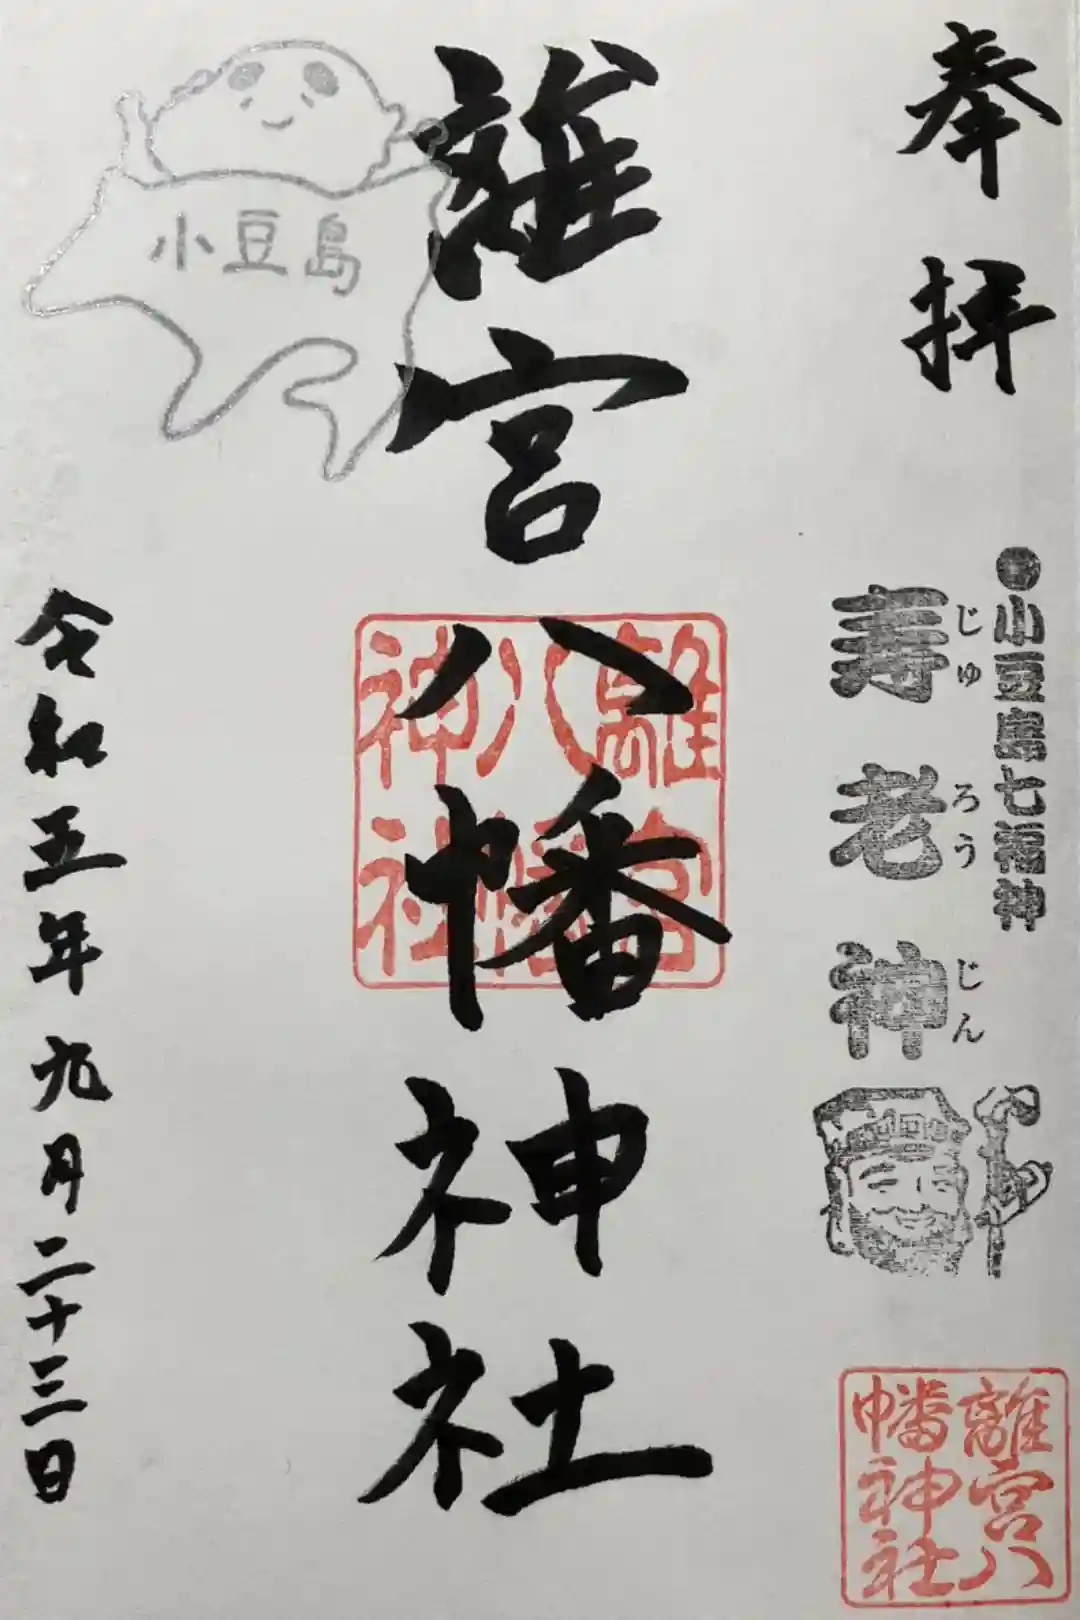 奉拝
小豆島七福神
じゅ ろう じん
寿老神
離宮八
幡神社
離宮八幡神社
離宮
八幡
神社
小豆島
令和五年九月二十三日